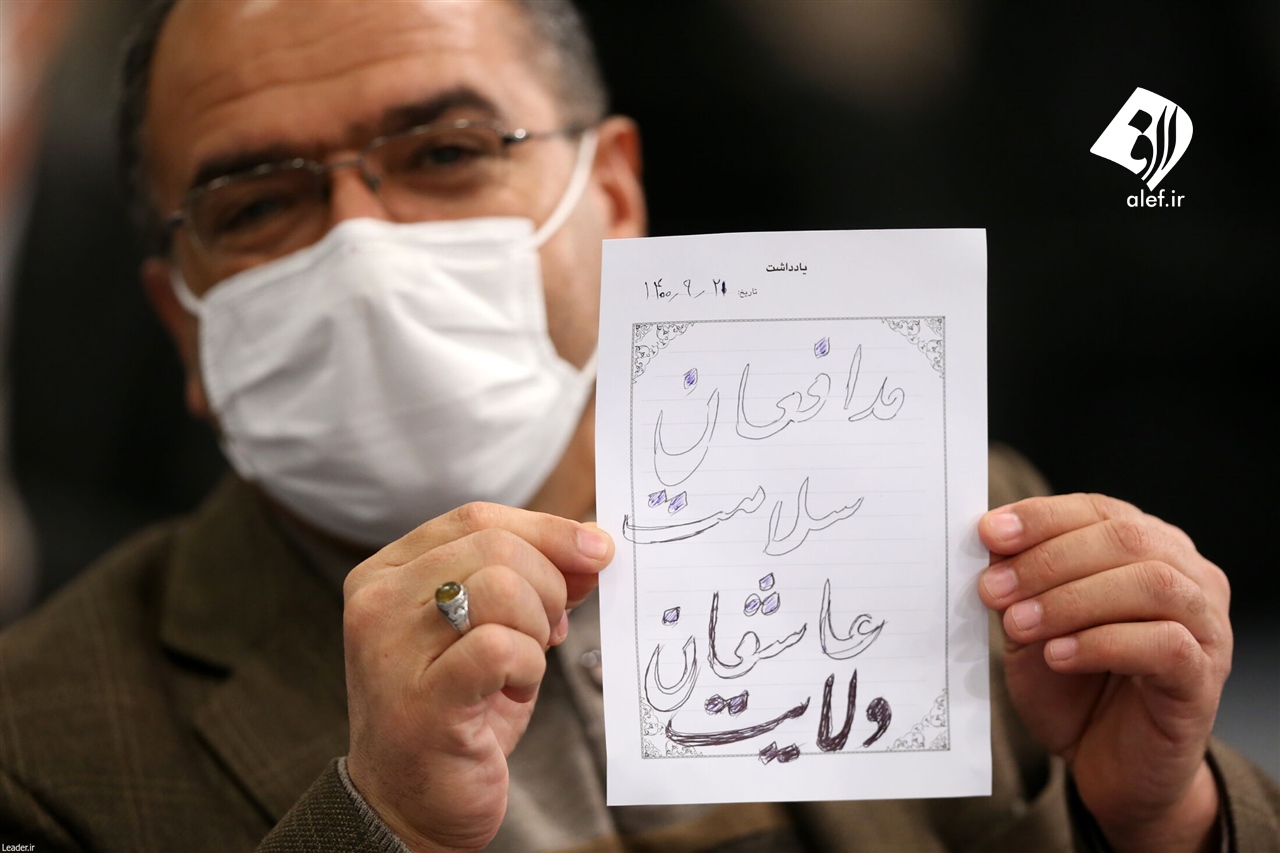 الف
alef.ir
یادداشت
تاریخ: ۱۴۰۰٫۹٫۲۱
مدافعان
سلامت
عاشقان
ولایت
Leader.ir